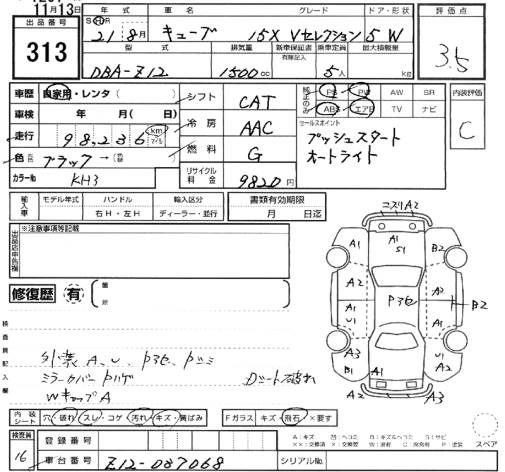 11月13日
出品番号
313
年式 車名 グレード ドア・形状
S・H 21 8月 キューブ 15X Vセレクション 5 W
型式 排気量 新車保証書 乗車定員 最大積載量
有除記入
DBA-Z12 1500cc 5人 kg
評価点
3.5
車歴 自家用・レンタ( )
車検 年 月(日)
走行 98,236 km マイル
色 ブラック →
カラーNo KH3
シフト CAT
冷房 AAC
燃料 G
リサイクル料金 9820円
純正のみ PS PW AW SR
ABS エアB TV ナビ
セールスポイント
プッシュスタート
オートライト
内装評価
C
輸入車 モデル年式 ハンドル 輸入区分
右H・左H ディーラー・並行
書類有効期限
月 日迄
出品店申告欄
※注意事項等記載
修復歴 有 箇所
検査員記入欄
外装 A、U、P3色、Pスミ
ミラーカバーPハゲ Dシート破れ
WキャップA
ニスリA2
A1 A1 S1 B2
A2 P3色 A2 B2
A1 U1 A1
A3 A2
B1 A1 U1
内装シート 穴・破れ スレ・コゲ 汚れ キズ・黄ばみ
Fガラス キズ・飛石 ×要す
A:キズ 凹:ヘコミ B:キズ&ヘコミ S:サビ
××:交換済 X:交換要 W:波 C:腐食有 P:塗装
スペア
検査員
16
登録番号
車台番号 Z12-087068 シリアルNo.